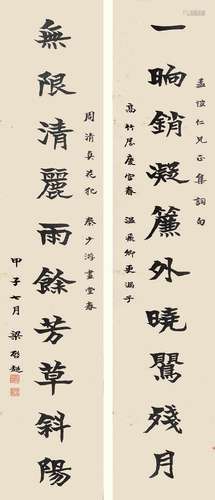 孟仁兄正 集詞句
一晌銷凝簾外曉鸎殘月
高竹屋慶宮春 溫飛卿更漏子
周清真花犯 秦少游畫堂春
無限清麗雨餘芳草斜陽
甲子七月 梁啟超